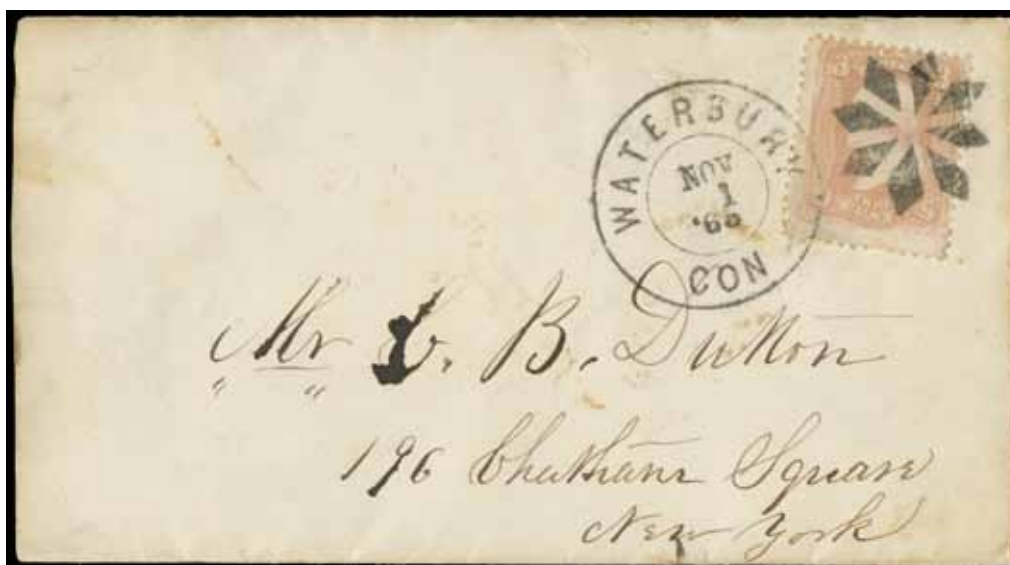 WATERBURY
NOV
1
CON
Mr B. Dutton
" "
196 Chatham Square
New York